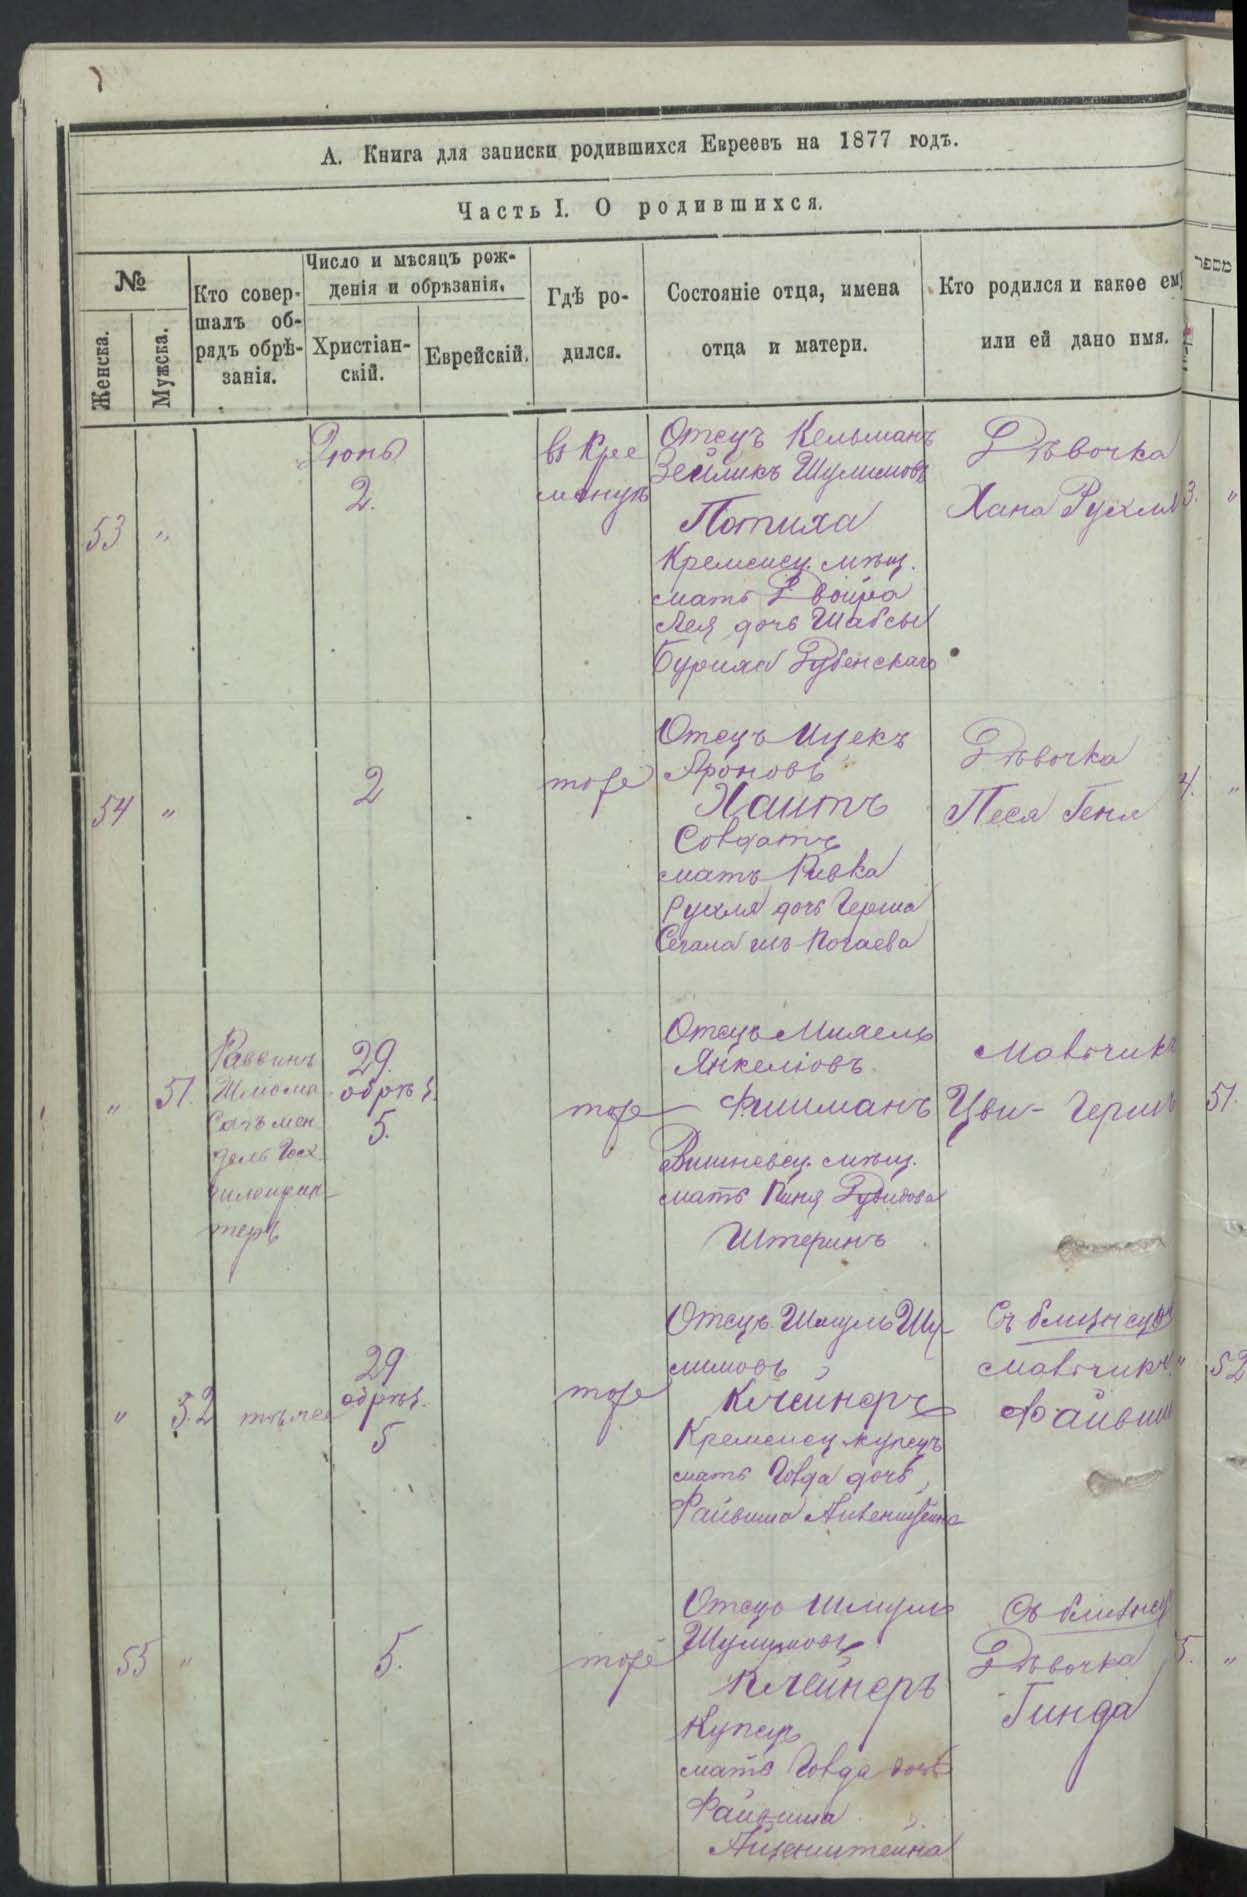 А. Книга для записки родившихся Евреевъ на 1877 годъ.
Часть I. О родившихся.
№
Женска.
Мужска.
Кто совер-
шалъ об-
рядъ обрѣ-
занія.
Число и мѣсяцъ рож-
денія и обрѣзанія.
Христіан-
скій.
Еврейскій.
Гдѣ ро-
дился.
Состояніе отца, имена
отца и матери.
Кто родился и какое ему
или ей дано имя.
מספר
53 "
Іюнь
2.
въ Кре
менцѣ
Отецъ Кельманъ
Зейликъ Шулимовъ
Потиха
Кременец. мѣщ.
мать Двойра
Лея дочь Шабсы
Дубенскаго
Дѣвочка
Хана Рухля
3. "
54 "
2
тоже
Отецъ Ицекъ
Ароновъ
Хаитъ
Солдатъ
мать Ривка
Рухля дочь Герша
Сегала изъ Почаева
Дѣвочка
Песя Геня
4. "
" 51.
Раввинъ
Шліома
мен
дель
теръ
29.
обрѣз.
5.
тоже
Отецъ Михель
Янкеліовъ
Фишманъ
Вишневец. мѣщ.
мать Киня Дувидова
Штеринъ
Мальчикъ
Цви-Гершъ
51.
" 52
тотъ же
29
обрѣз.
5
тоже
Отецъ Шмуль Шу-
лимовъ
Клейнеръ
Кременец купецъ
мать Голда дочь
Файвиша Айзенштейна
Съ близнецовъ
мальчикъ
Файвиш
" 52
55 "
5.
тоже
Отецъ Шмуль
Шулимовъ
Клейнеръ
Купецъ
мать Голда дочь
Файвиша
Айзенштейна
Съ близнец
Дѣвочка
Гинда
5. "